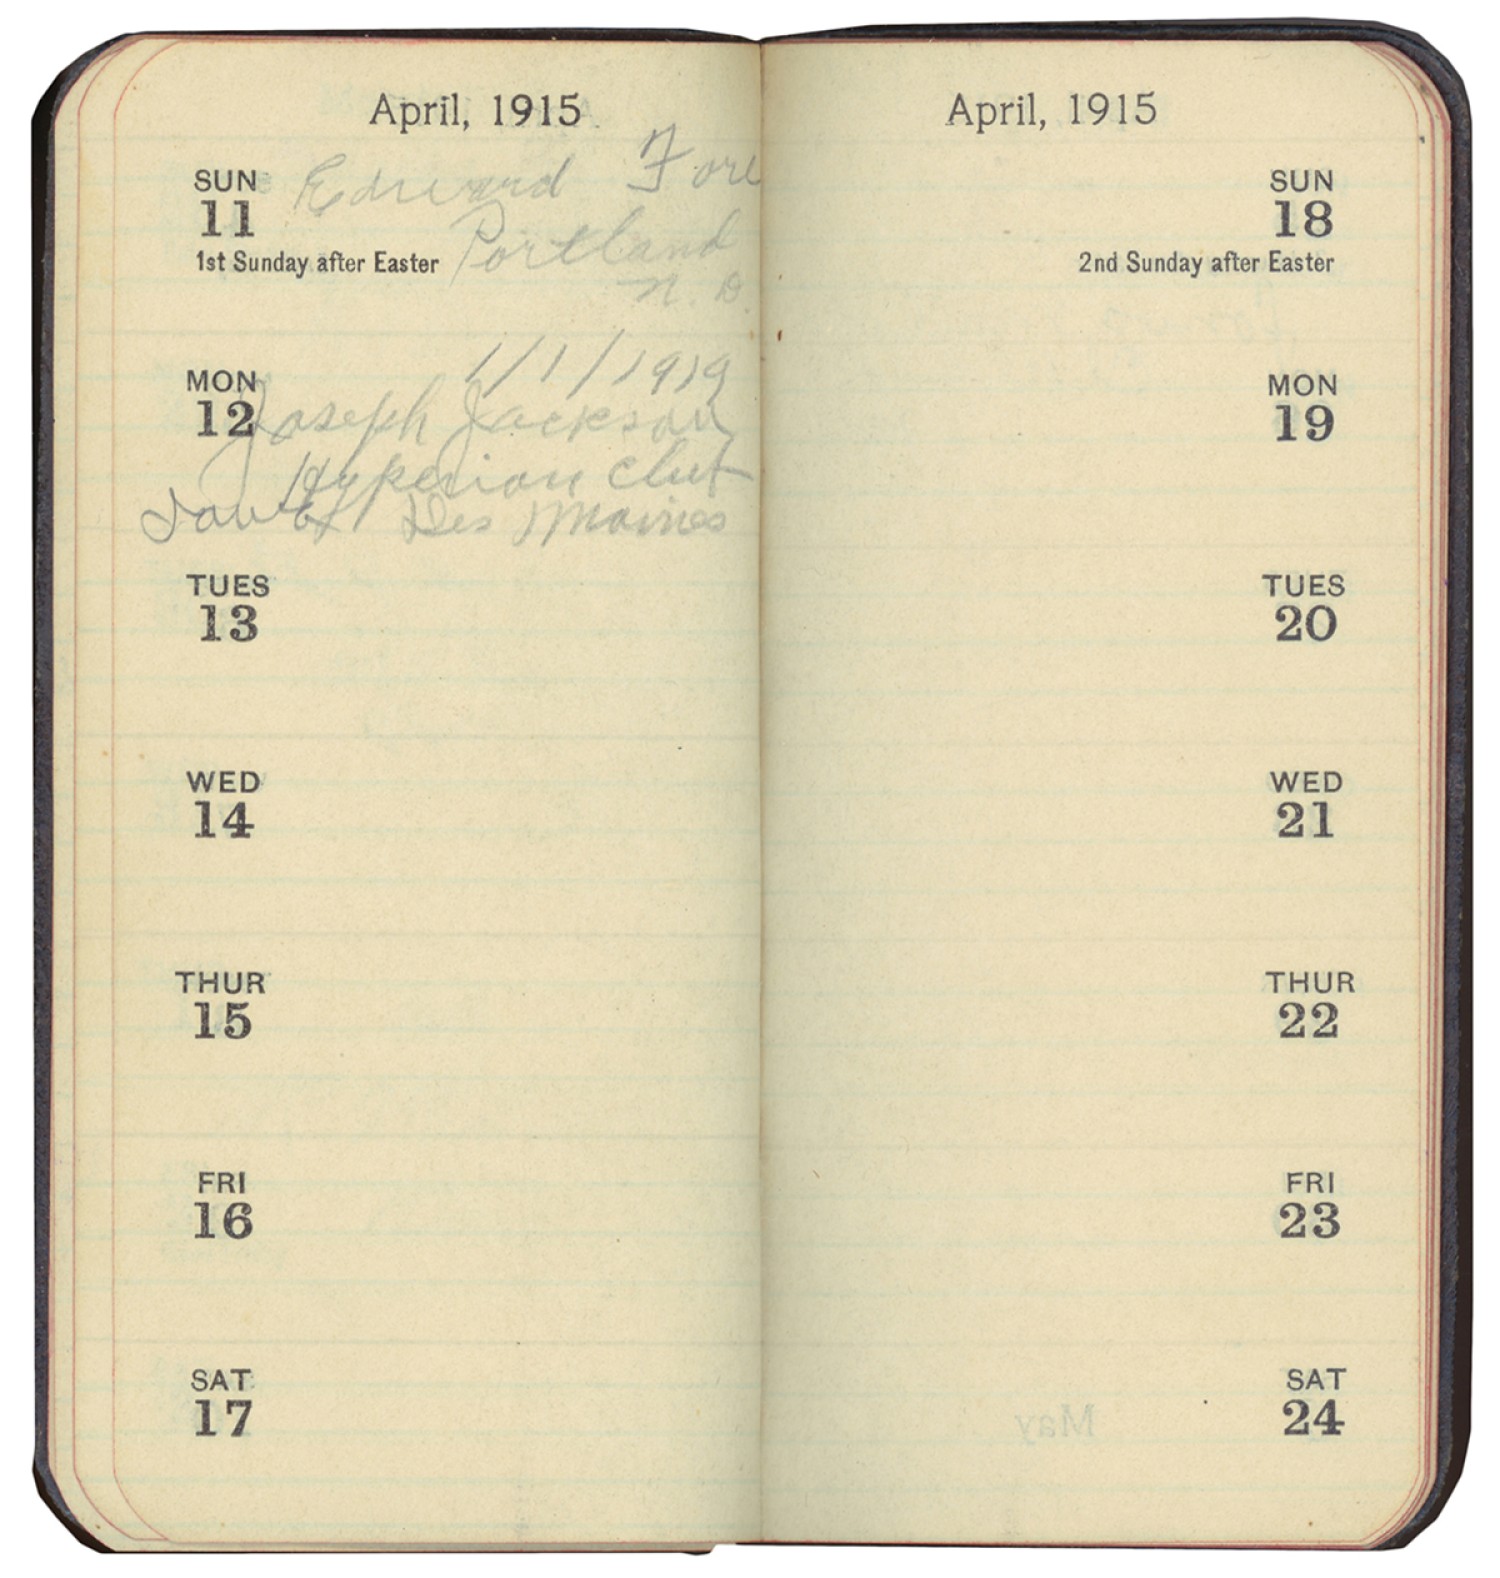 April, 1915
SUN Edward
11 Portland
1st Sunday after Easter
N. D.
1/1/1919
MON
12 Joseph Jackson
Hyperion Club
Iowa Des Moines
TUES
13
WED
14
THUR
15
FRI
16
SAT
17
April, 1915
SUN
18
2nd Sunday after Easter
MON
19
TUES
20
WED
21
THUR
22
FRI
23
SAT
24
May